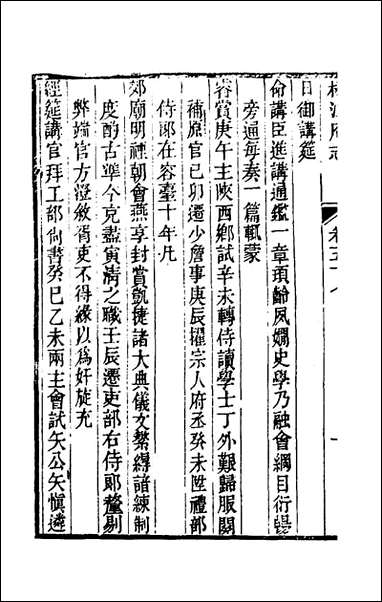 松江府志
卷五十八
日御講筵
命講臣進講通鑑一章頊齡夙嫺史學乃融會綱目衍暢
旁通每奏一篇輒蒙
睿賞庚午主陝西鄉試辛未轉侍讀學士丁外艱歸服闋
補原官己卯遷少詹事庚辰擢宗人府丞癸未陞禮部
侍郎在容臺十年凡
郊廟明禋朝會燕享封賞凱捷諸大典儀文繁縟諳練制
度酌古準今克盡寅清之職壬辰遷吏部右侍郎釐剔
弊端官方澄敘胥吏不得緣以為奸旋充
經筵講官拜工部尚書癸巳乙未兩主會試矢公矢愼遴